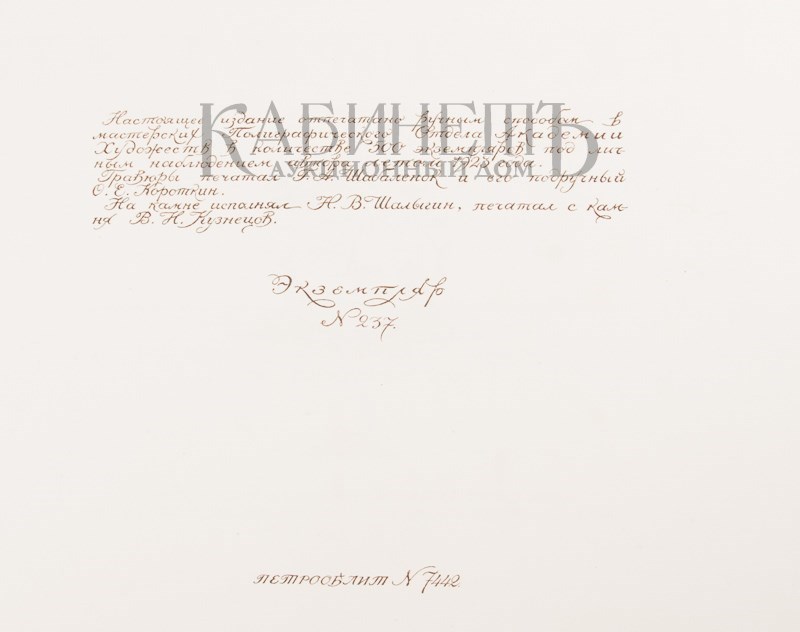 КАБИНЕТЪ
АУКЦИОННЫЙ ДОМ
Настоящее издание отпечатано ручным способом в
мастерских Полиграфического Отдела Академии
Художеств в количестве 300 экземпляров под лич-
ным наблюдением автора летом 1923 года.
Гравюры печатал и его подручный
С. Е. Короткин.
На камне исполнял А. В. Шалыгин, печатал с кам-
ня В. Н. Кузнецов.
Экземпляр
N 237.
ПЕТРООБЛИТ N 7442